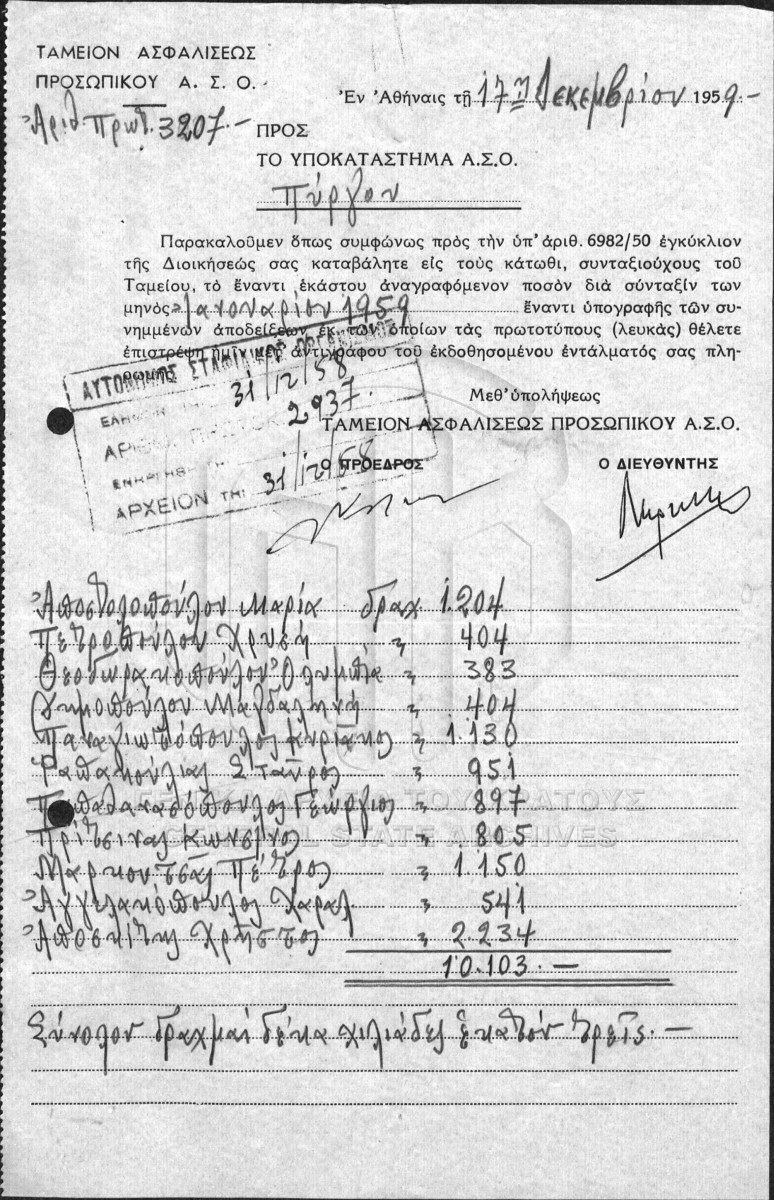 ΤΑΜΕΙΟΝ ΑΣΦΑΛΙΣΕΩΣ
ΠΡΟΣΩΠΙΚΟΥ Α. Σ. Ο.
Ἀριθ. Πρωτ. 3207.-
Ἐν Ἀθήναις τῇ 17ῃ Δεκεμβρίου 1959-
ΠΡΟΣ
ΤΟ ΥΠΟΚΑΤΑΣΤΗΜΑ Α.Σ.Ο.
Πύργου
Παρακαλοῦμεν ὅπως συμφώνως πρὸς τὴν ὑπ' ἀριθ. 6982/50 ἐγκύκλιον
τῆς Διοικήσεώς σας καταβάλητε εἰς τοὺς κάτωθι, συνταξιούχους τοῦ
Ταμείου, τὸ ἔναντι ἑκάστου ἀναγραφόμενον ποσὸν διὰ σύνταξιν τῶν
μηνὸς Ἰανουαρίου 1959 ἔναντι ὑπογραφῆς τῶν συ-
νημμένων ἀποδείξεων ἐκ τῶν ὁποίων τὰς πρωτοτύπους (λευκὰς) θέλετε
ἐπιστρέψῃ ἡμῖν μετ' ἀντιγράφου τοῦ ἐκδοθησομένου ἐντάλματός σας πλη-
ρωμῆς.
ΑΥΤΟΝΟΜΟΣ ΣΤΑΦΙΔΙΚΟΣ ΟΡΓΑΝΙΣΜΟΣ
31/12/58
ΑΡΙΘΜ. 2937.
ΑΡΧΕΙΟΝ ΤΗι 31/12/58
Μεθ' ὑπολήψεως
ΤΑΜΕΙΟΝ ΑΣΦΑΛΙΣΕΩΣ ΠΡΟΣΩΠΙΚΟΥ Α.Σ.Ο.
Ο ΠΡΟΕΔΡΟΣ Ο ΔΙΕΥΘΥΝΤΗΣ
Ἀποστολοπούλου Μαρία δραχ 1.204
Πετροπούλου Χρυσῆ " 404
Θεοδωρακοπούλου Ὀλυμπία " 383
Δημοπούλου Μαγδαληνή " 404
Παναγιωτόπουλος Κυριάκος " 1.130
Ραπακούλιας Σταῦρος " 951
Παπαθανασόπουλος Γεώργιος " 897
Πρίτσινας Κων/τῖνος " 805
Μαρκουτσᾶς Πέτρος " 1.150
Ἀγγελακόπουλος Χαραλ. " 541
Ἀποσκίτης Χρῆστος " 2234
10.103.-
Σύνολον δραχμαί δέκα χιλιάδες ἑκατόν τρεῖς.-
ΓΕΝΙΚΑ ΑΡΧΕΙΑ ΤΟΥ ΚΡΑΤΟΥΣ
GENERAL STATE ARCHIVES